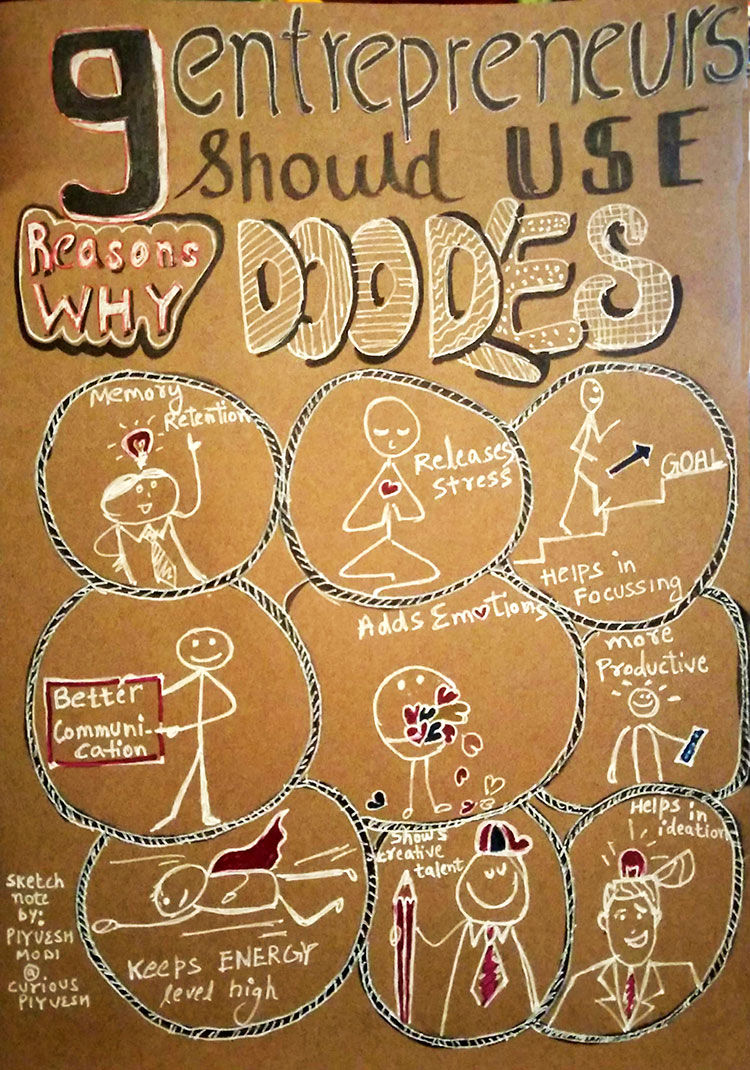 9 entrepreneurs
should USE
Reasons
WHY
DOODLES
Memory
Retention
Releases
Stress
GOAL
Helps in
Focussing
Better
Communi-
cation
Adds Emotions
more
Productive
Keeps ENERGY
level high
Shows
creative
talent
Helps in
ideation
Sketch
note
by:
PIYUESH
MODI
@
curious
PIYUESH